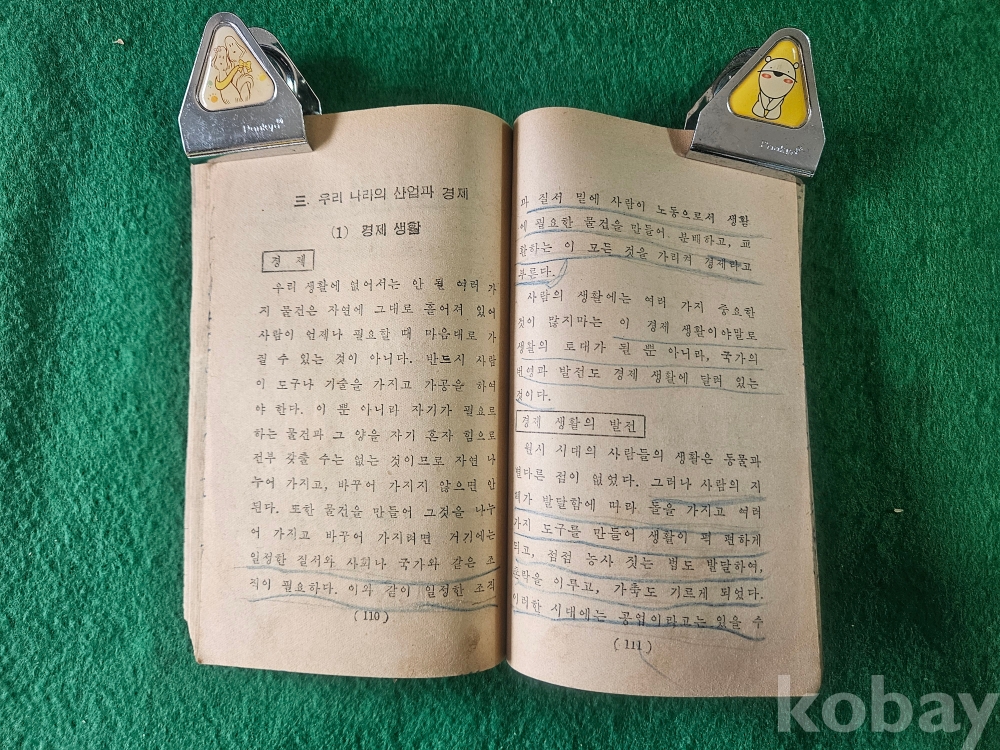 三. 우리 나라의 산업과 경제
(1) 경제 생활
경 제
우리 생활에 없어서는 안 될 여러 가
지 물건은 자연에 그대로 흩어져 있어
사람이 언제나 필요한 때 마음대로 가
질 수 있는 것이 아니다. 반드시 사람
이 도구나 기술을 가지고 가공을 하여
야 한다. 이 뿐 아니라 자기가 필요로
하는 물건과 그 양을 자기 혼자 힘으로
전부 갖출 수는 없는 것이므로 자연 나
누어 가지고, 바꾸어 가지지 않으면 안
된다. 또한 물건을 만들어 그것을 나누
어 가지고 바꾸어 가지려면 거기에는
일정한 질서와 사회나 국가와 같은 조
직이 필요하다. 이와 같이 일정한 조직
(110)
과 질서 밑에 사람이 노동으로서 생활
에 필요한 물건을 만들어, 분배하고, 교
환하는 이 모든 것을 가리켜 경제라고
부른다.
사람의 생활에는 여러 가지 중요한
것이 많지마는 이 경제 생활이야말로
생활의 토대가 될 뿐 아니라, 국가의
번영과 발전도 경제 생활에 달려 있는
것이다.
경제 생활의 발전
원시 시대의 사람들의 생활은 동물과
별다른 점이 없었다. 그러나 사람의 지
혜가 발달함에 따라 돌을 가지고 여러
가지 도구를 만들어 생활이 퍽 편하게
되고, 점점 농사 짓는 법도 발달하여,
촌락을 이루고, 가축도 기르게 되었다.
이러한 시대에는 공업이라고는 있을 수
(111)
kobay